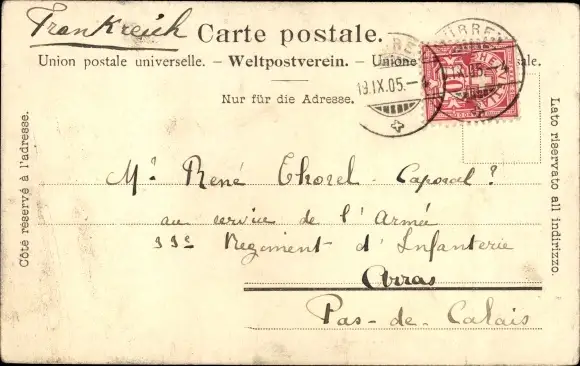 Frankreich
Carte postale.
Union postale universelle. – Weltpostverein. – Unione
Nur für die Adresse.
19.IX.05.–
MÜRREN
10
Côté réservé à l'adresse.
Lato riservato all indirizzo.
Mr René Thorel Caporal ?
au service de l'Armée
33e Regiment d'Infanterie
Arras
Pas-de-Calais